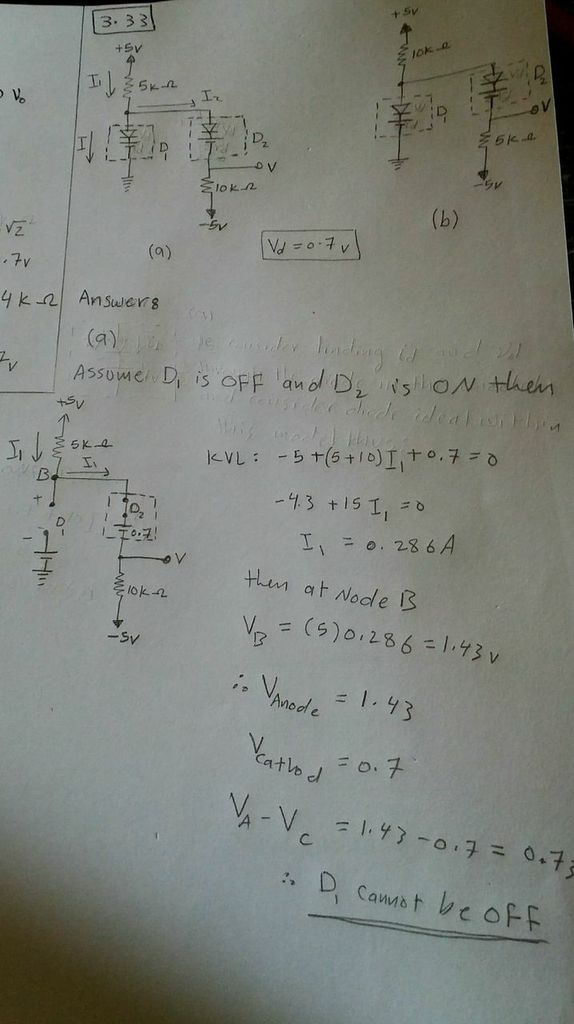 3.33
+5v
I₁ ↓ 5k Ω
I₂
I ↓ D₁ D₂
V
10k Ω
-5v
(a)
+5v
10k Ω
D₂
D₁
V
5k Ω
-5v
(b)
Vd = 0.7 v
V₀
√2
.7v
4 k Ω
Answers
(a)
Assume D₁ is OFF and D₂ is ON then
+5v
I₁ ↓ 5k Ω
B I₁
+
D₁
-
D₂
0.7
V
10k Ω
-5v
KVL: -5 + (5+10) I₁ + 0.7 = 0
-4.3 + 15 I₁ = 0
I₁ = 0.286 A
then at Node B
V_B = (5) 0.286 = 1.43 v
∴ V_Anode = 1.43
V_Cathod = 0.7
V_A - V_C = 1.43 - 0.7 = 0.73
∴ D₁ cannot be OFF